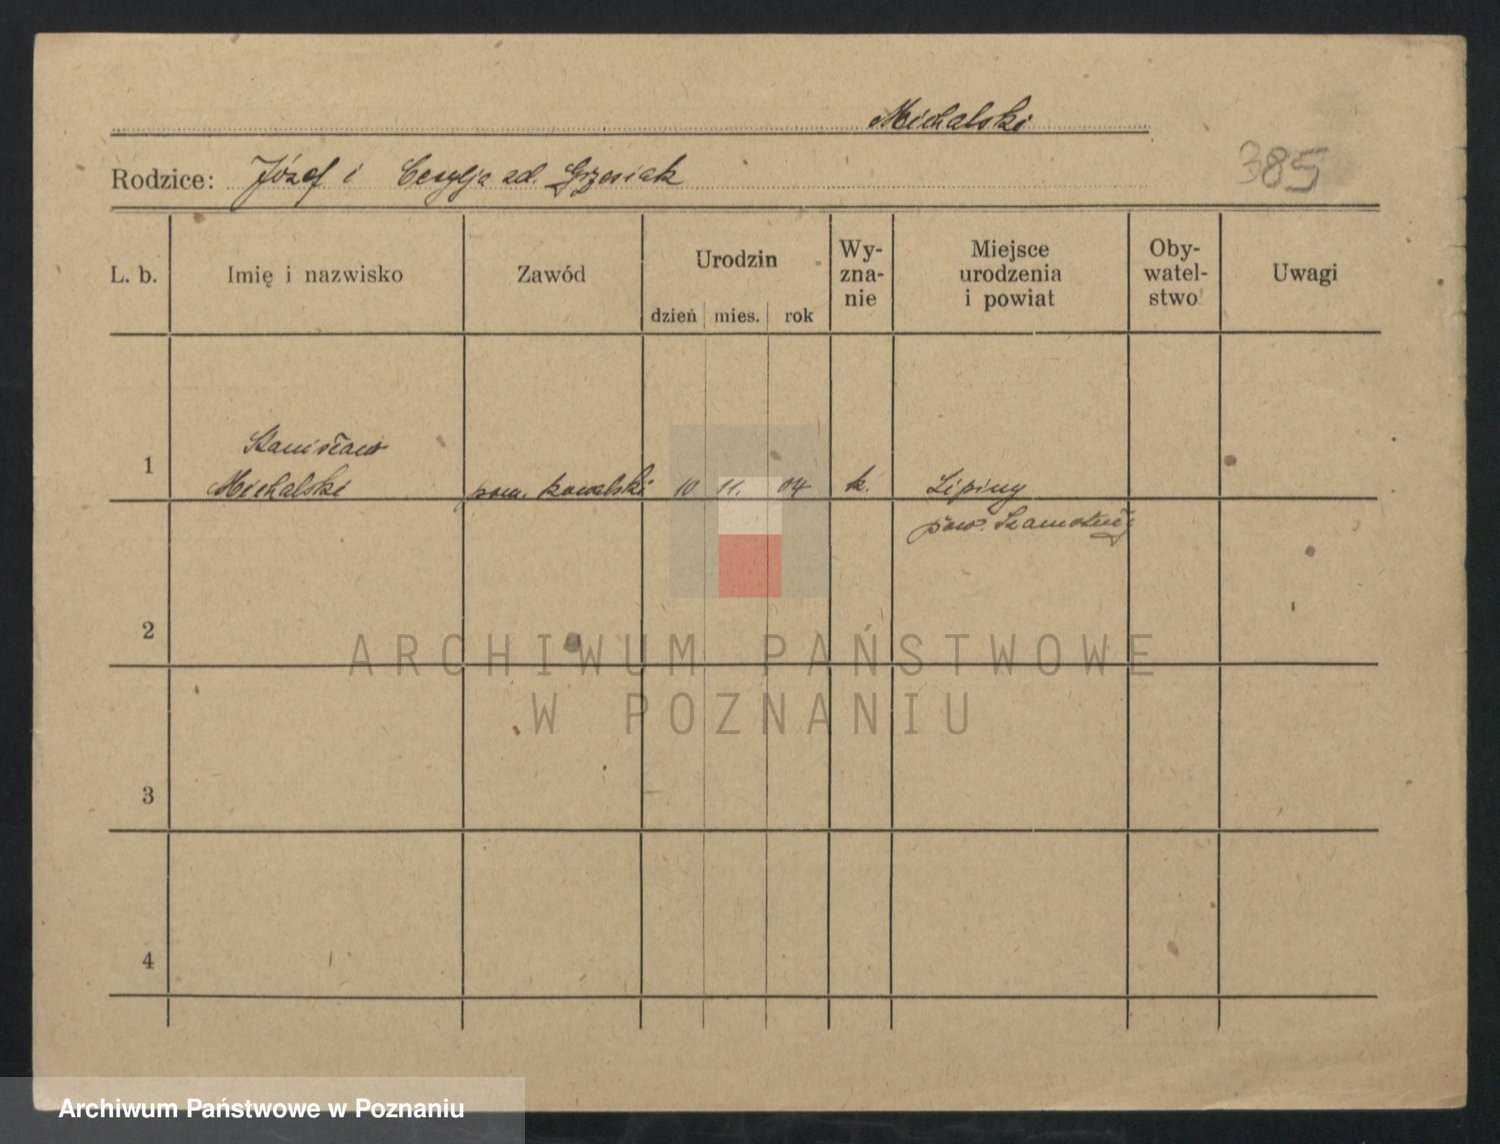 Michalski
Rodzice: Józef i Cecylja zd. Grzesiak
385
L. b. Imię i nazwisko Zawód Urodzin dzień mies. rok Wy-zna-nie Miejsce urodzenia i powiat Oby-watel-stwo Uwagi
Stanisław
1 Michalski pom. kowalski 10 11. 04 k. Lipiny
pow. Szamotuły
2
ARCHIWUM PAŃSTWOWE
W POZNANIU
3
4
Archiwum Państwowe w Poznaniu